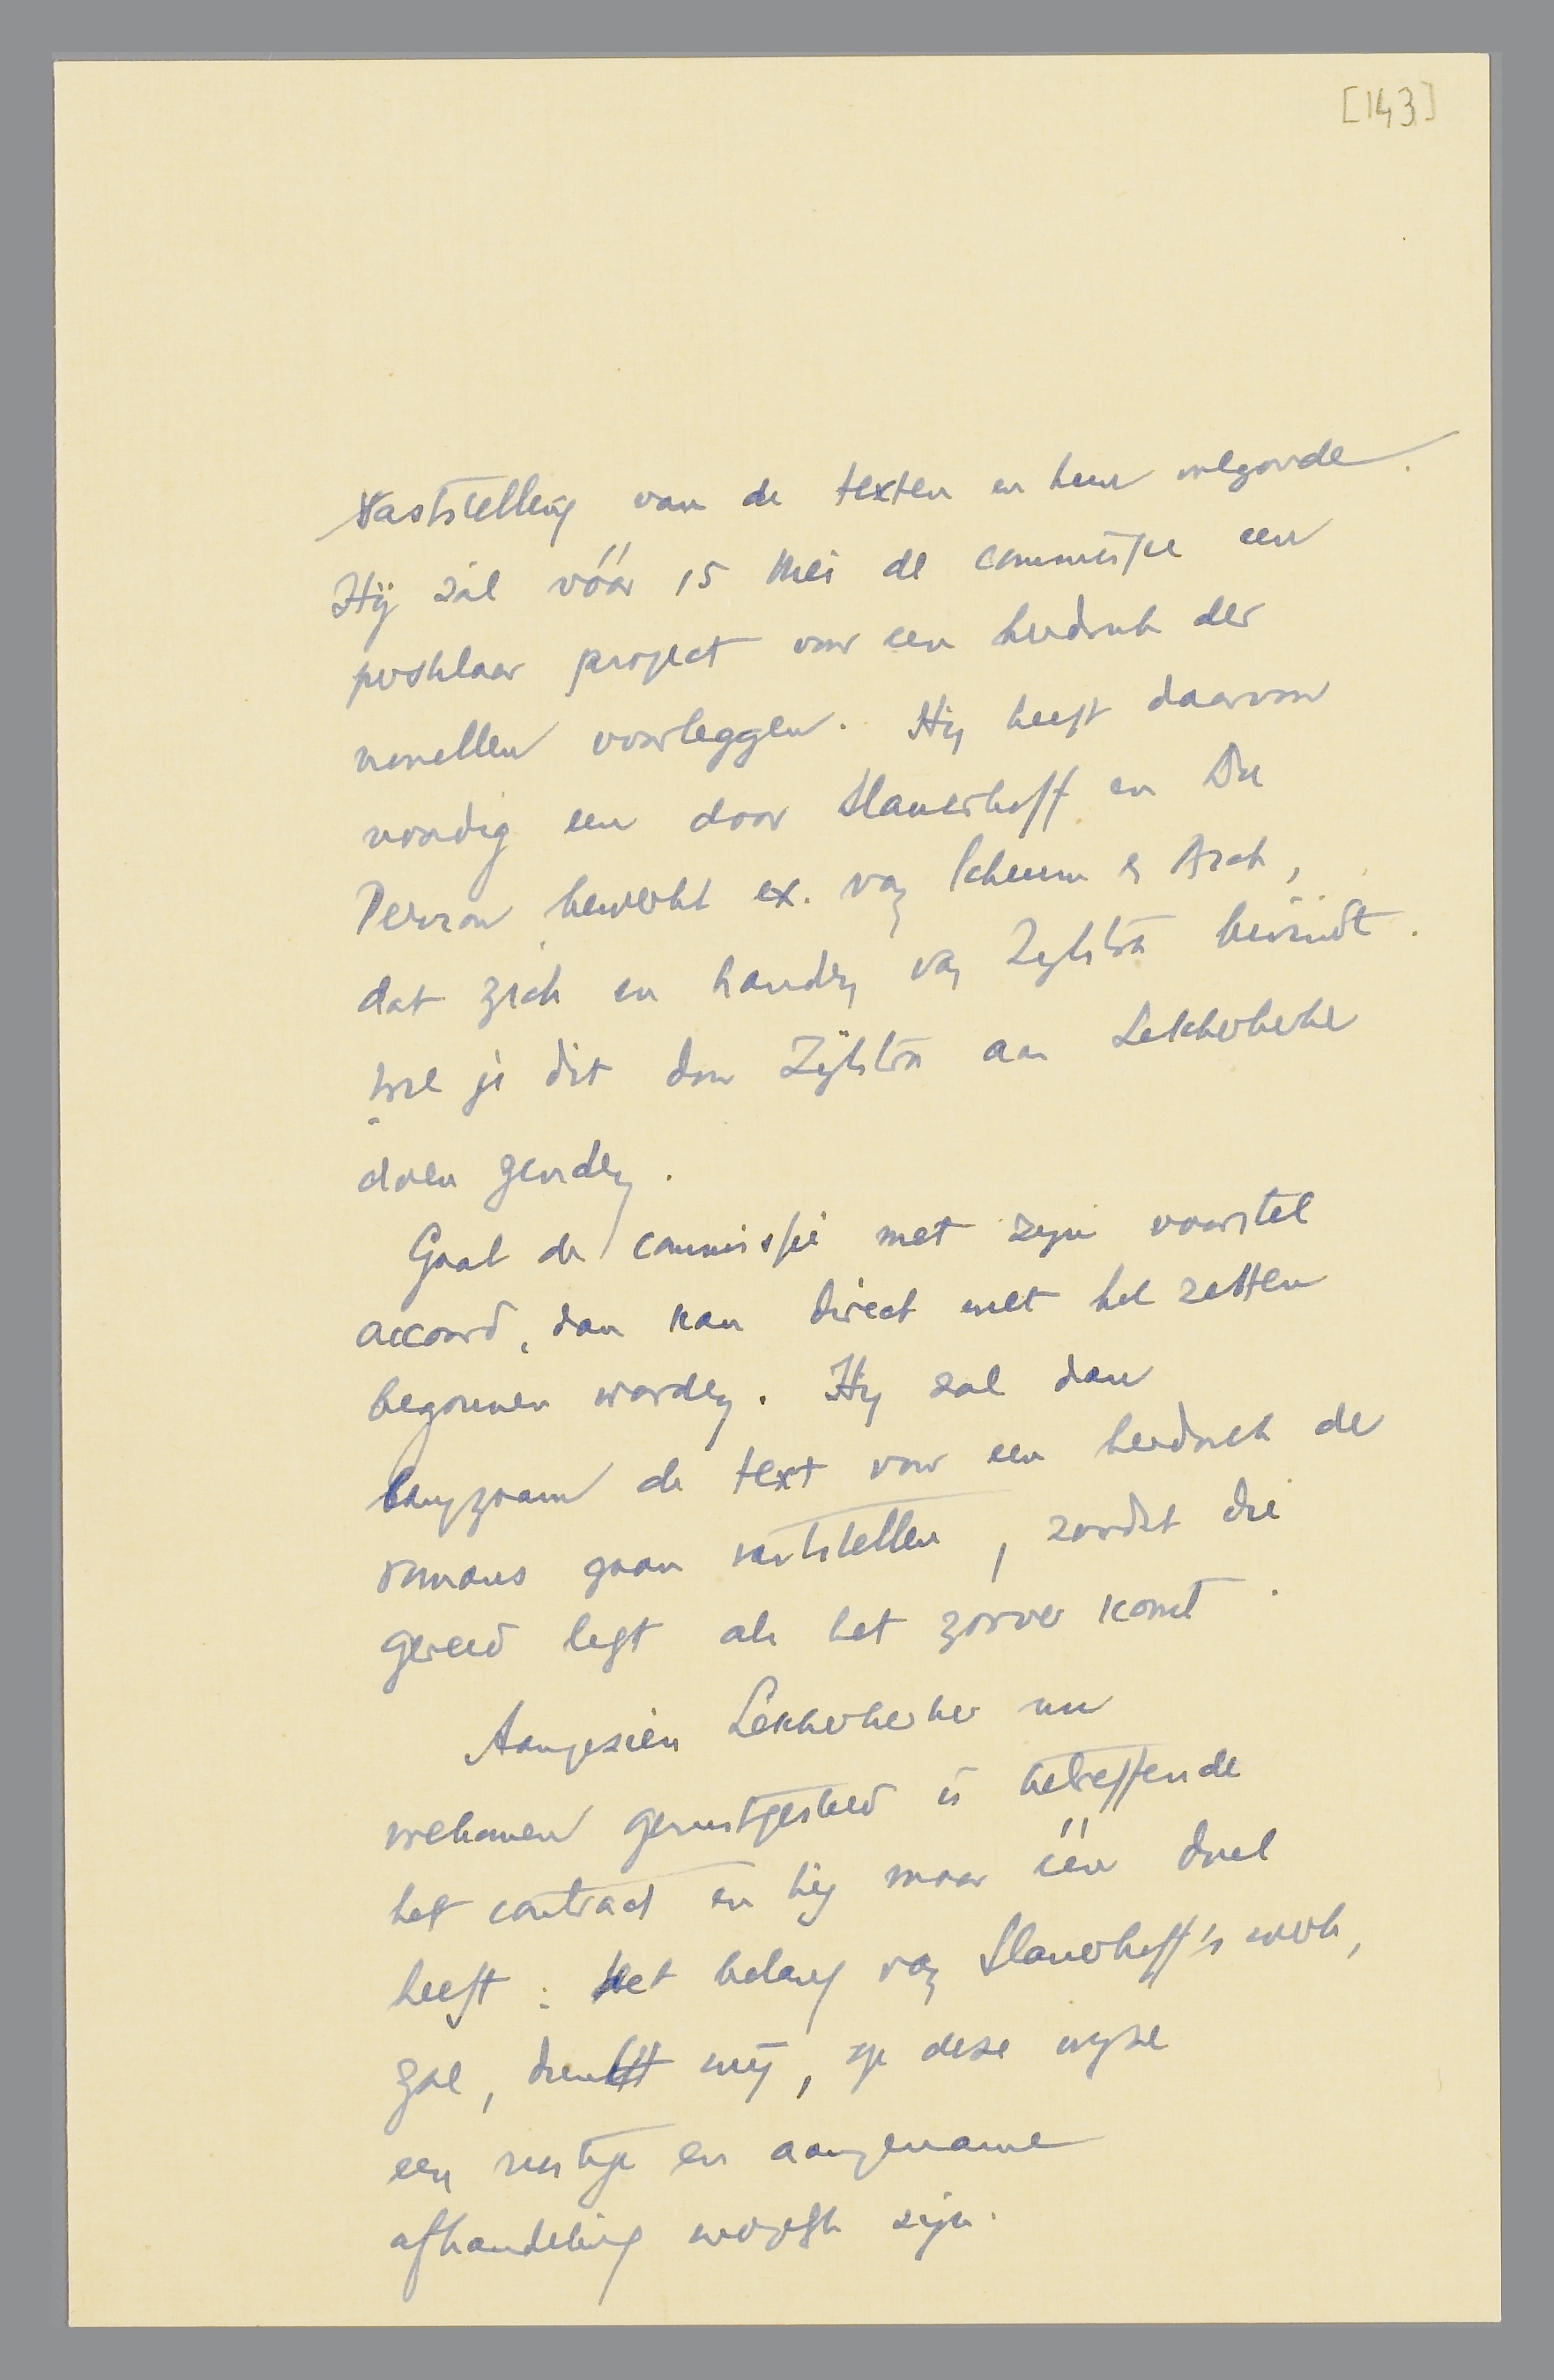 [143]
Vaststelling van de texten en hun volgorde.
Hij zal vóór 15 Mei de commissie een
persklaar project voor een herdruk der
novellen voorleggen. Hij heeft daarvoor
noodig een door Slauerhoff en Du
Perron bewerkt ex. van Schuim en Asch,
dat zich in handen van Zijlstra bevindt.
Wil je dit door Zijlstra aan Lekkerkerker
doen zenden.
Gaat de commissie met zijn voorstel
accoord, dan kan direct met het zetten
begonnen worden. Hij zal dan
langzaam de text voor een herdruk der
romans gaan vaststellen, zoodat die
gereed ligt als het zoover komt.
Aangezien Lekkerkerker nu
volkomen gerustgesteld is betreffende
het contract en hij maar één doel
heeft: het belang van Slauerhoff's werk,
zal, dunkt mij, op deze wijze
een rustige en aangename
afhandeling mogelijk zijn.